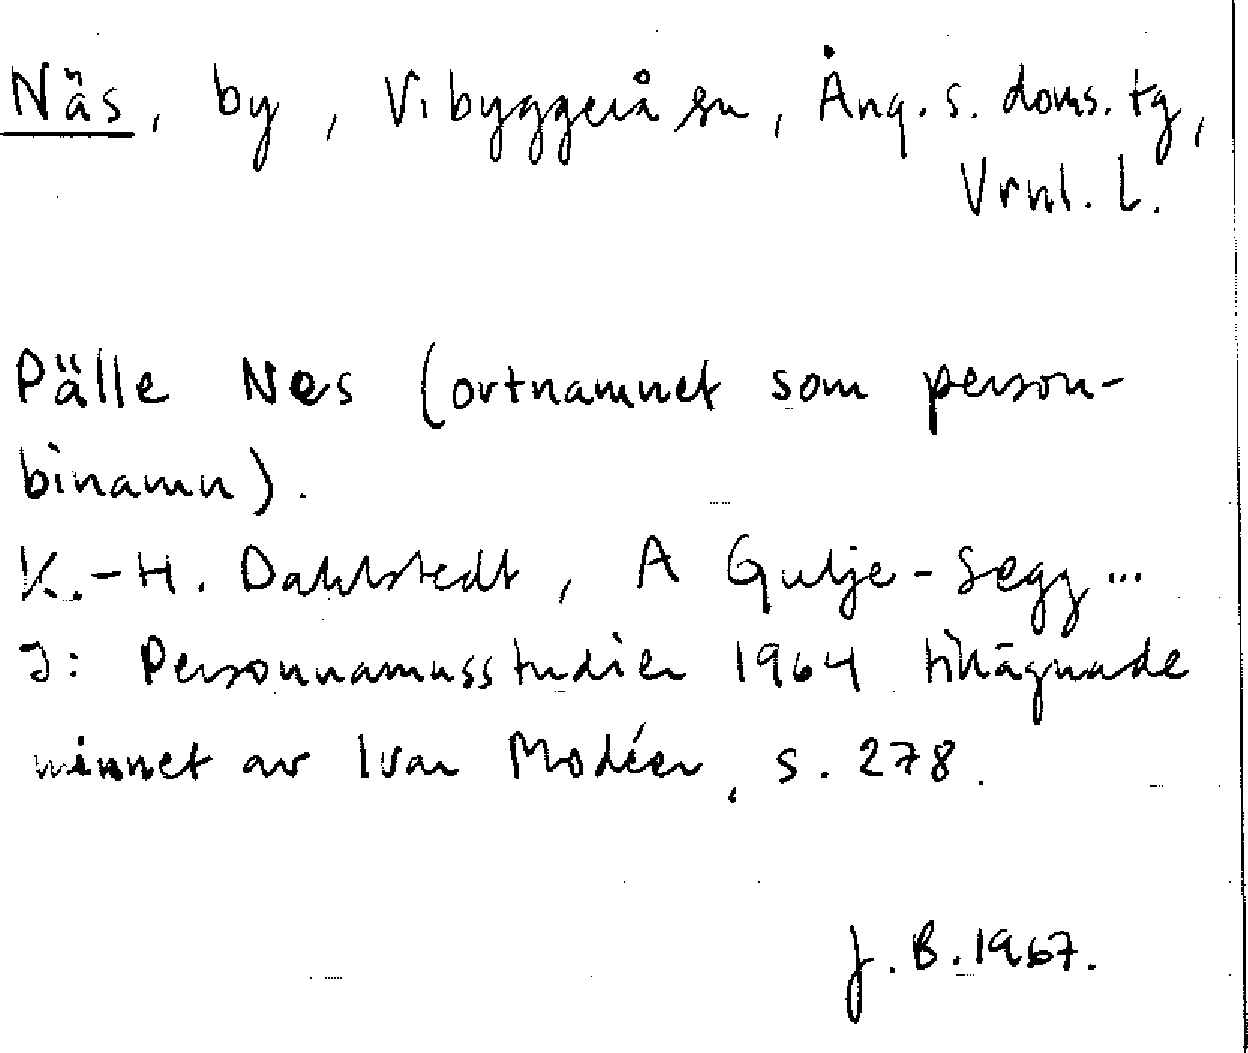 Näs, by, Vibyggerå sn, Ång. s. doms. tg,
Vrnl. L.
Pälle Nes (ortnamnet som person-
binamn).
K.-H. Dahlstedt, A Gulje-Segg...
I: Personnamnsstudier 1964 tillägnade
minnet av Ivar Modéer, s. 278.
J. B. 1967.